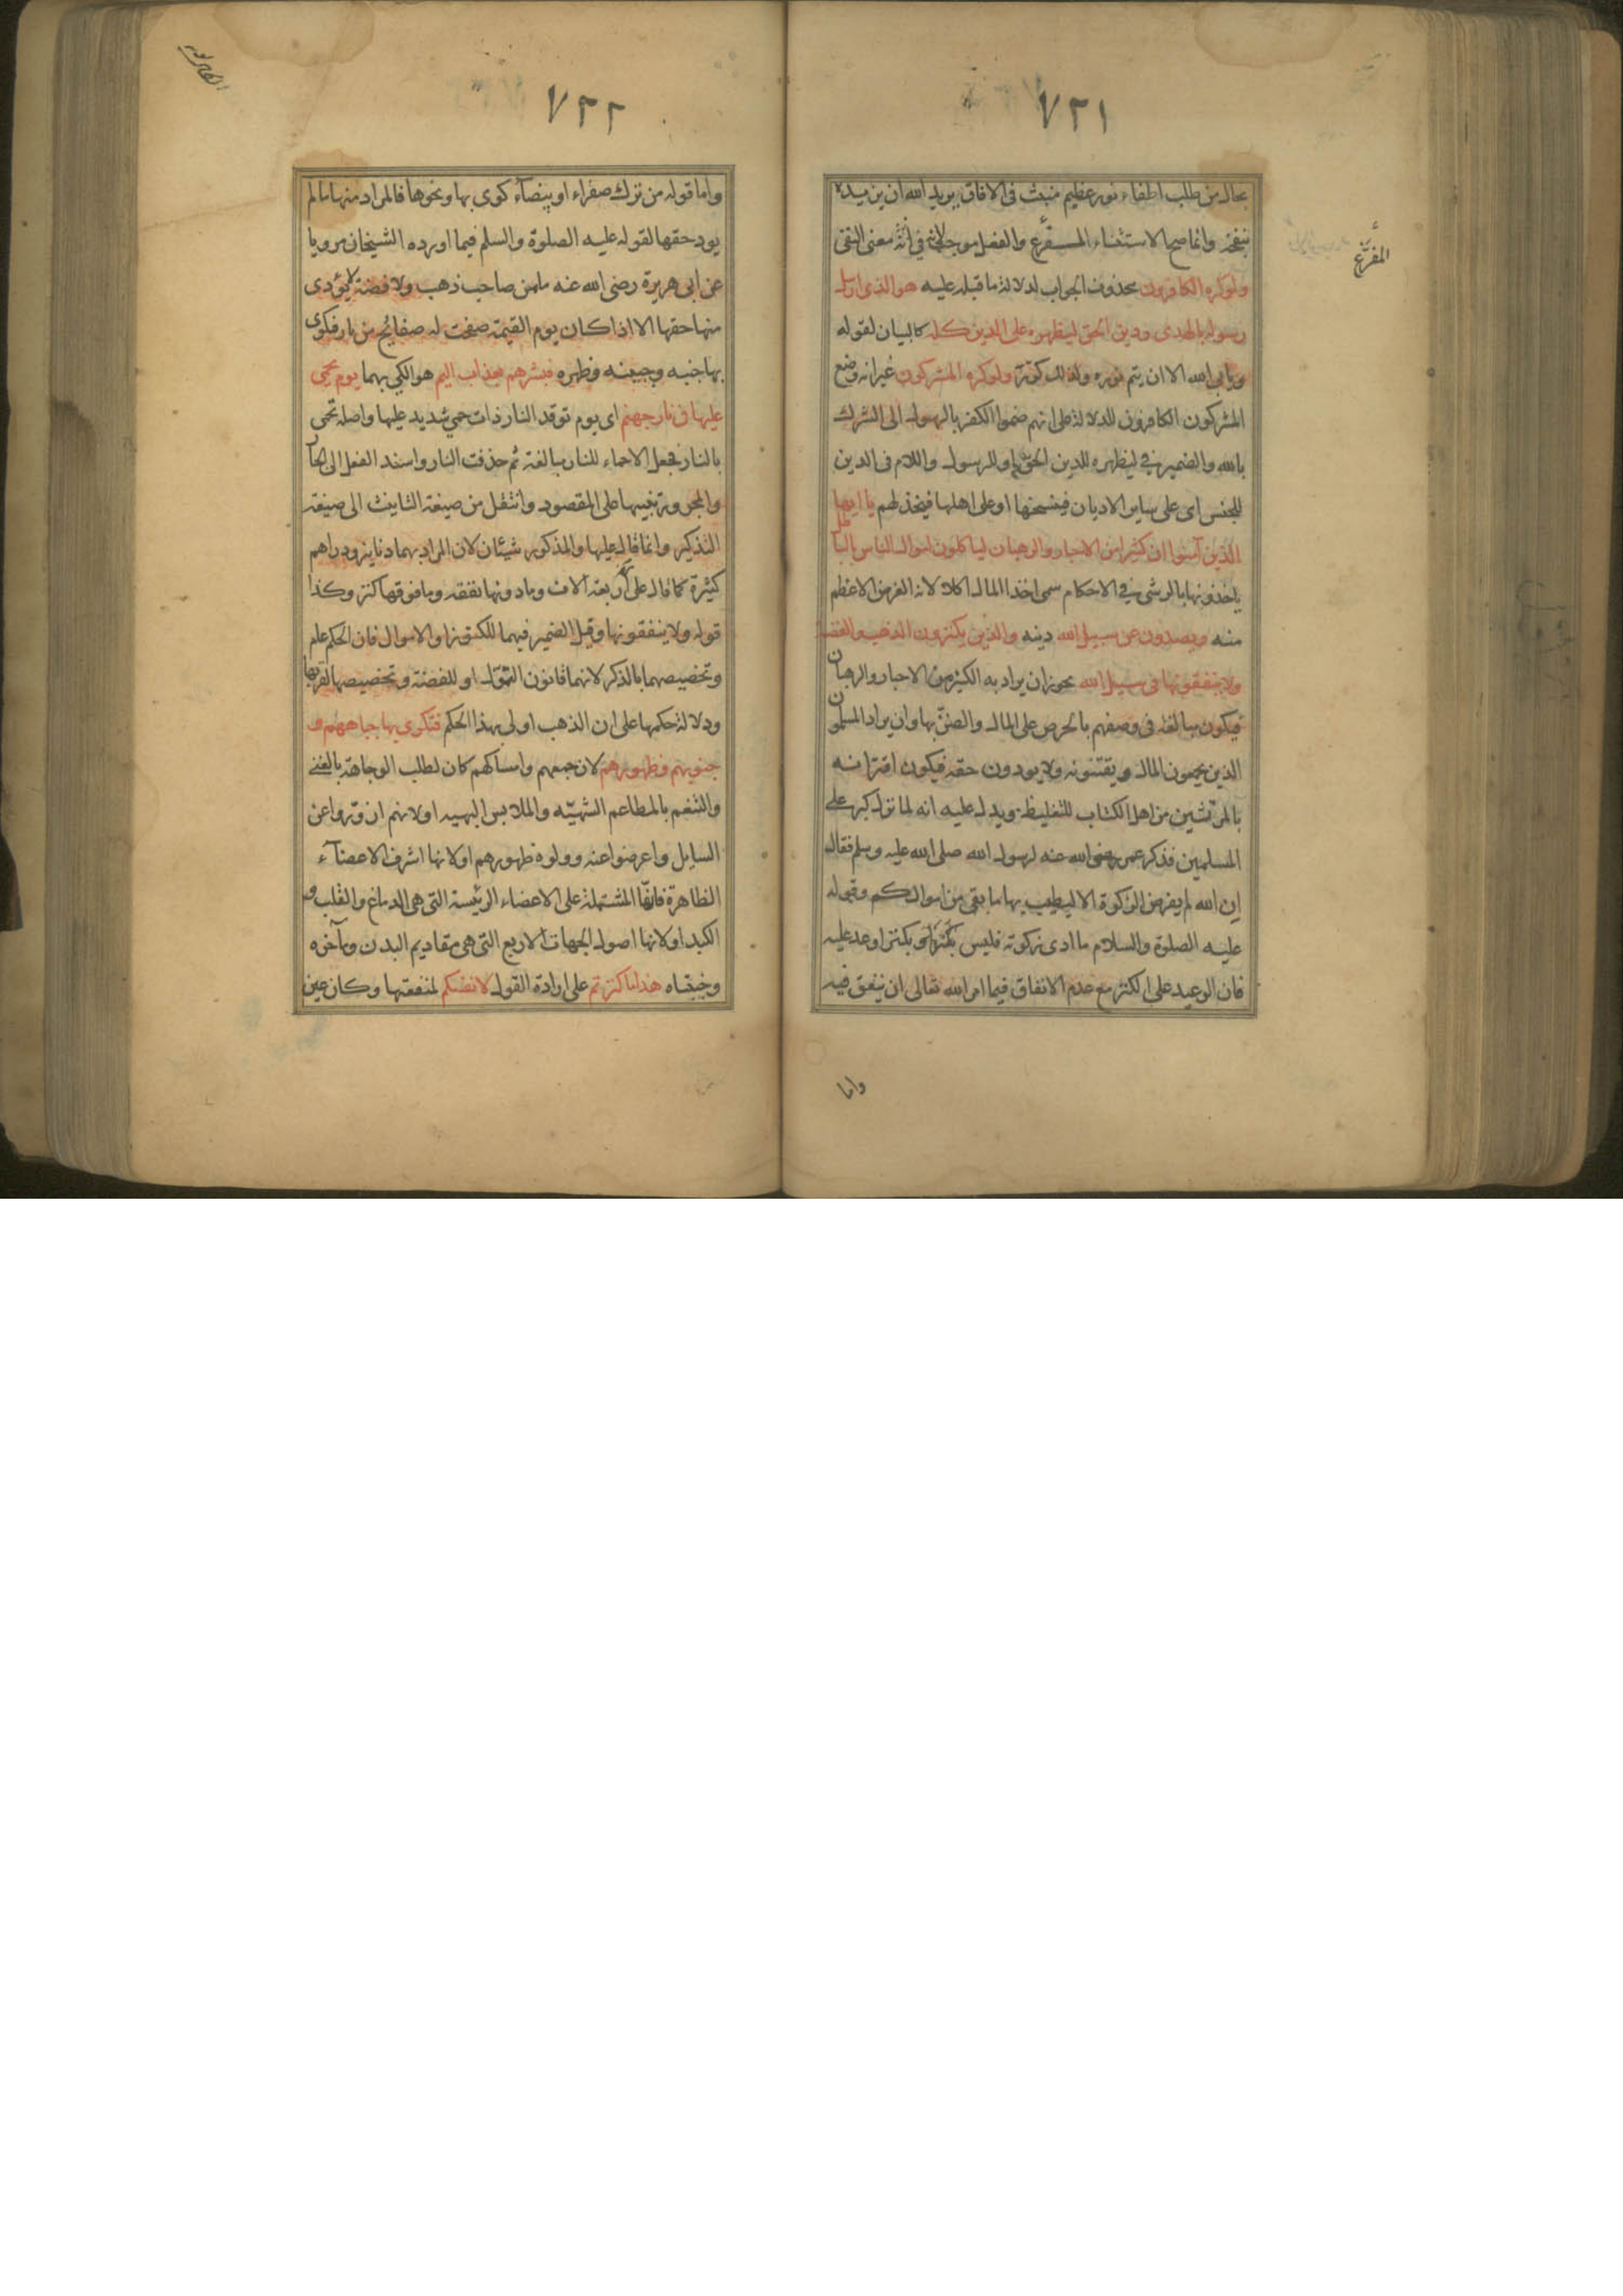 ٧٢١
بحال من طلب اطفاء نور عظيم منبث فى الافاق يريد الله ان يزيده
بنفخه وانما صح الاستثناء المفرغ والفعل موجب لانه فى معنى النفى
ولوكره الكافرون محذوف الجواب لدلالة ما قبله عليه هو الذى ارسل
رسوله بالهدى ودين الحق ليظهره على الدين كله كالبيان لقوله
ويابى الله الا ان يتم نوره ولذلك كرر ولوكره المشركون غير انه وضع
المشركون الكافرون للدلالة على انهم ضموا الكفر بالرسول الى الشرك
بالله والضمير فى ليظهره للدين الحق او للرسول واللام فى الدين
للجنس اى على ساير الاديان فينسخها او على اهلها فيخذلهم يا ايها
الذين آمنوا ان كثيرا من الاحبار والرهبان لياكلون اموال الناس بالباطل
ياخذونها بالرشى فى الاحكام سمى اخذ المال اكلا لانه الغرض الاعظم
منه ويصدون عن سبيل الله دينه والذين يكنزون الذهب والفضة
ولا ينفقونها فى سبيل الله يجوز ان يراد به الكثير من الاحبار والرهبان
فيكون مبالغة فى وصفهم بالحرص على المال والضن بها وان يراد المسلمون
الذين يجمعون المال ويقتنونه ولا يودون حقه فيكون اقترانه
بالمرتشين من اهل الكتاب للتغليظ ويدل عليه انه لما نزل كبر على
المسلمين فذكر عمر رضى الله عنه لرسول الله صلى الله عليه وسلم فقال
ان الله لم يفرض الزكوة الا ليطيب بها ما بقى من اموالكم وقوله
عليه الصلوة والسلام ما ادى زكوته فليس بكنز اى بكنز اوعد عليه
فان الوعيد على الكنز مع عدم الانفاق فيما امر الله تعالى ان ينفق فيه
المفرغ
واما
٧٢٢
واما قوله من ترك صفراء او بيضاء كوى بها ونحوها فالمراد منها ما لم
يود حقها لقوله عليه الصلوة والسلم فيما اورده الشيخان مرويا
عن ابى هريرة رضى الله عنه ما من صاحب ذهب ولا فضة لا يؤدى
منها حقها الا اذا كان يوم القيمة صفحت له صفائح من نار فيكوى
بها جنبه وجبينه وظهره فبشرهم بعذاب اليم هو الكى بهما يوم يحمى
عليها فى نار جهنم اى يوم توقد النار ذات حمى شديد عليها واصله تحمى
بالنار فجعل الاحماء للنار مبالغة ثم حذفت النار واسند الفعل الى الجار
والمجرور تنبيها على المقصود وانتقل من صيغة التانيث الى صيغة
التذكير وانما قال عليها والمذكور شيئان لان المراد بهما دنانير ودراهم
كثيرة كما قال على اربعة الاف وما دونها نفقه وما فوقها كنز وكذا
قوله ولا ينفقونها وقيل الضمير فيهما للكنوز او الاموال فان الحكم عام
وتخصيصهما بالذكر لانهما قانون التمول او للفضة وتخصيصها لقربها
ودلالة حكمها على ان الذهب اولى بهذا الحكم فتكوى بها جباههم و
جنوبهم وظهورهم لان جمعهم وامساكهم كان لطلب الوجاهة بالغنى
والتنعم بالمطاعم الشهية والملابس البهيه او لانهم ازوروا عن
السايل واعرضوا عنه وولوه ظهورهم او لانها اشرف الاعضاء
الظاهرة فانها المشتملة على الاعضاء الرئيسة التى هى الدماغ والقلب و
الكبد او لانها اصول الجهات الاربع التى هى مقاديم البدن ومآخره
وجنبتاه هذا ما كنزتم على ارادة القول لانفسكم لمنفعتها وكان عين